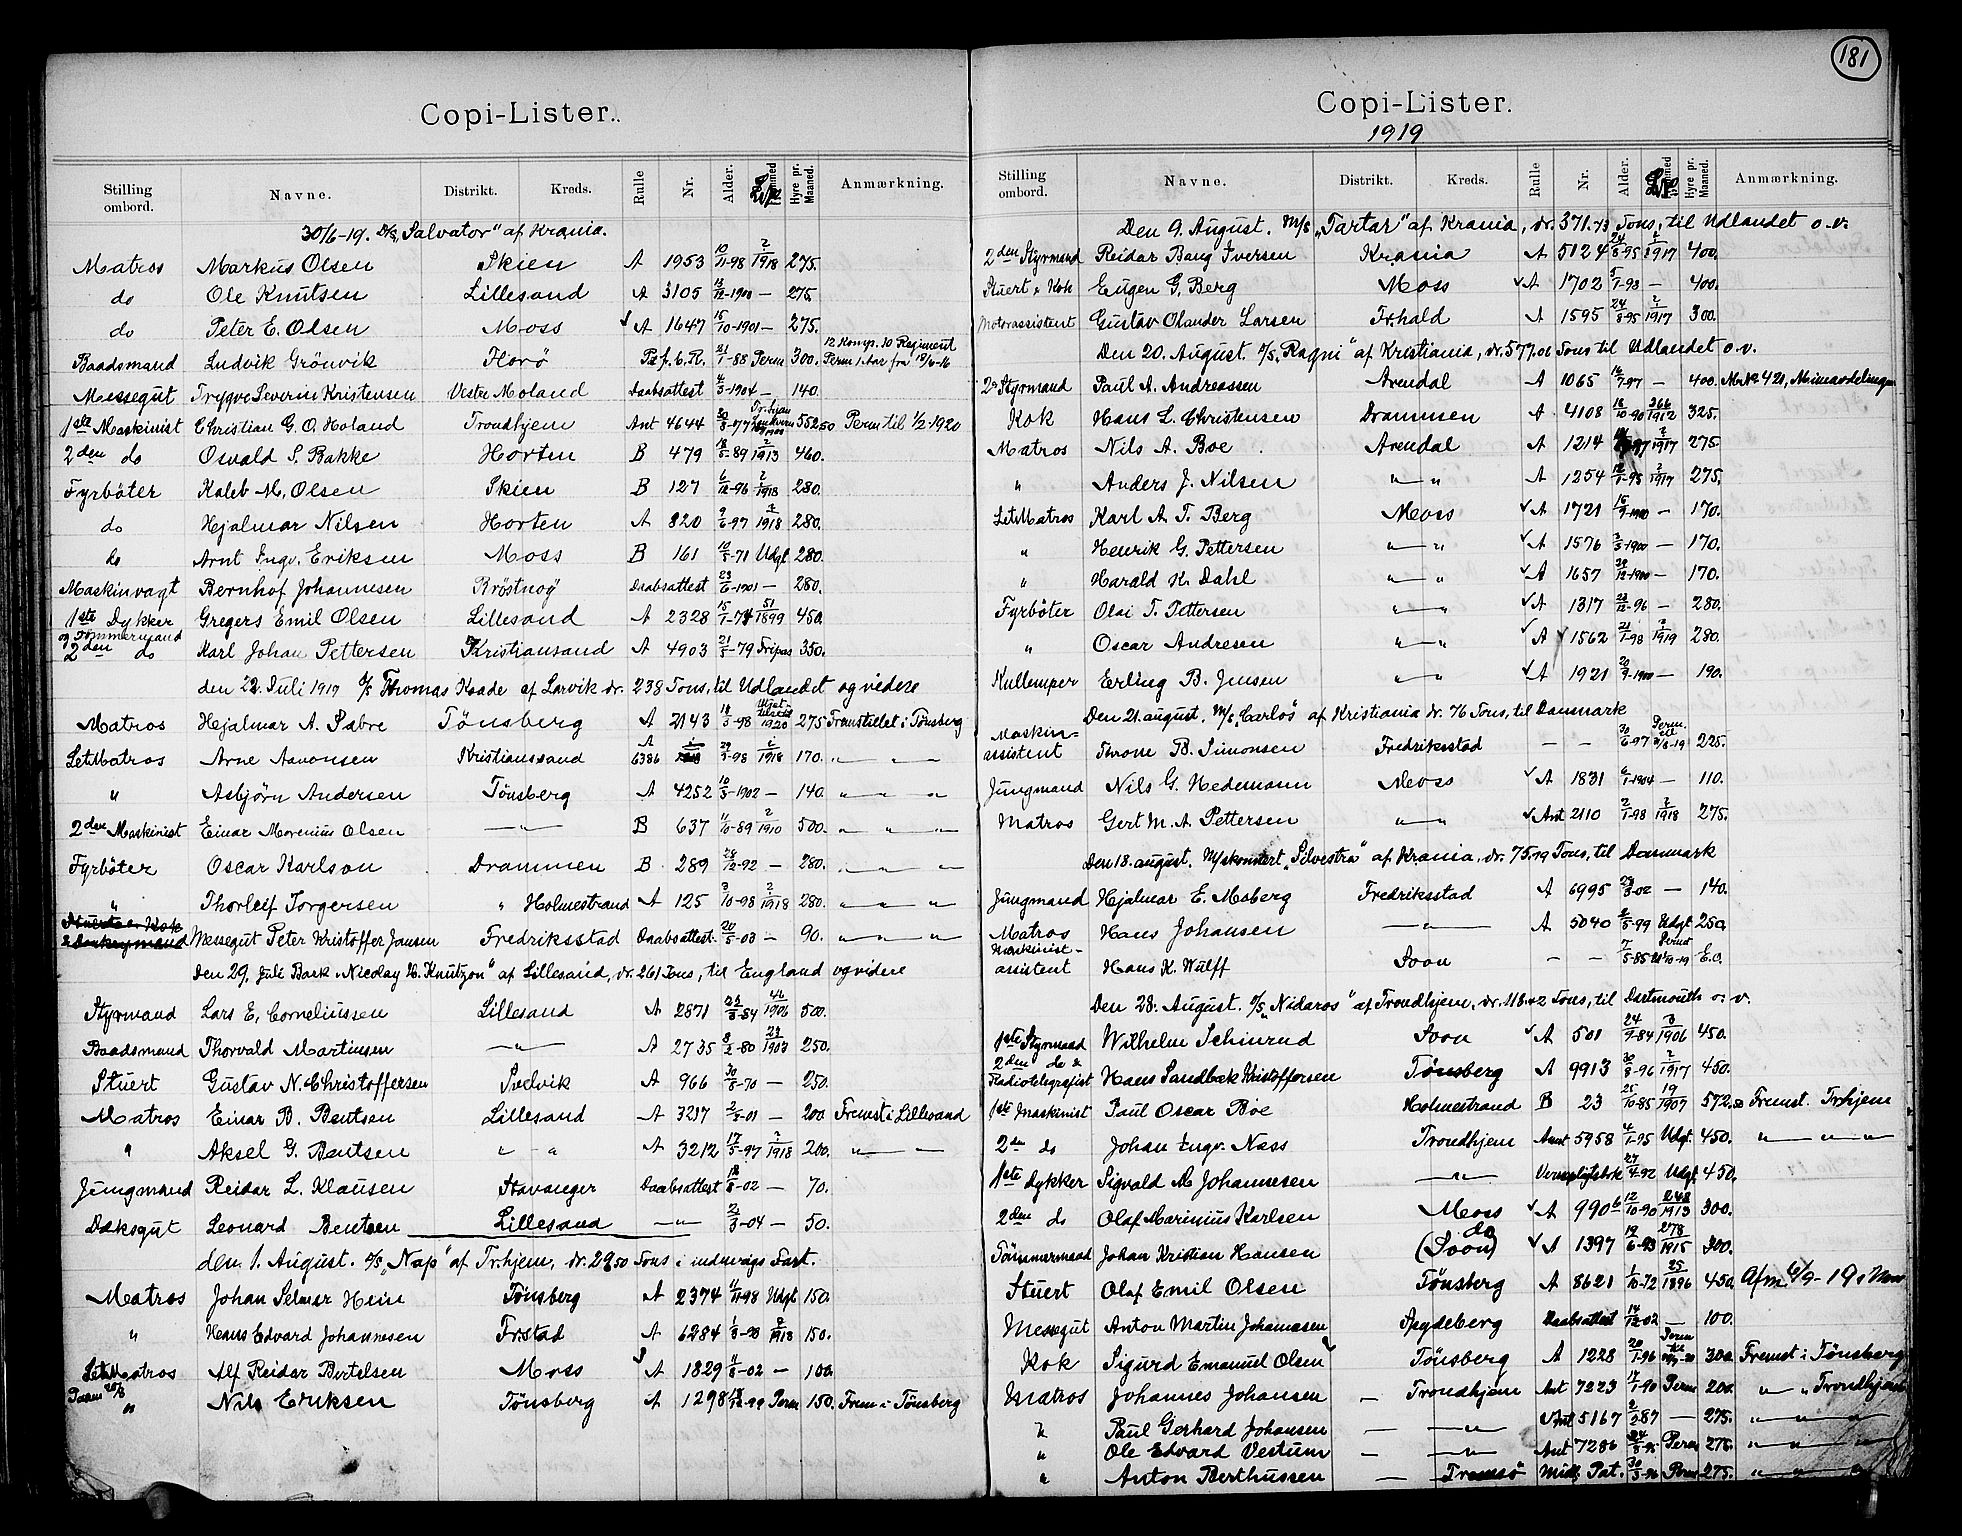 181
Copi-Lister.
Stilling ombord. Navne. Distrikt. Kreds. Rulle Nr. Alder. Hyre pr. Maaned. Anmærkning.
30/6-19. D/S „Salvator" af Krania.
Matros Markus Olsen Skien A 1953 10/11-98 2/1918 275.
do Ole Knutsen Lillesand A 3105 13/12-1900 — 275.
do Peter E. Olsen Moss A 1647 15/10-1901 — 275.
Baadsmand Ludvik Grönvik Florö 21/1-88 Perm 300. 12 Komp. 10 Regiment Perm 1 Aar fra
Messegut Trygve Severin Kristensen Vestre Moland Daabsattest 4/3-1904 — 140.
1ste Maskinist Christian G. O. Holand Trondhjem Ant 4644 552.50 Perm til 1/2-1920
2den do Osvald S. Bakke Horten B 479 18/5-89 2/1913 460.
Fyrböter Kaleb M. Olsen Skien B 127 6/12-96 2/1918 280.
do Hjalmar Nilsen Horten A 820 9/6-97 2/1918 280.
do Arnt Ingv. Eriksen Moss B 161 10/5-71 Udgt 280.
Maskinvagt Bernhof Johannesen Brösnöy Daabsattest 23/6-1901 — 280.
1ste Dykker Gregers Emil Olsen Lillesand A 2328 15/1-74 51/1899 450.
og Tömmermand
2den do Karl Johan Pettersen Kristiansand A 4903 21/5-79 Fripas 350.
den 22. Juli 1919 D/S Thomas Haade af Larvik dr. 238 Tons, til Udlandet og videre
Matros Hjalmar A. Sabre Tönsberg A 2143 18/5-98 1920 275 Fremstillet i Tönsberg
LetMatros Arne Aavonsen Kristianssand A 6386 29/3-98 2/1918 170. " "
" Asbjörn Andersen Tönsberg A 4252 10/5-1902 — 140. " " "
2den Maskinist Einar Morenius Olsen — " — B 637 11/10-89 2/1910 500. " " "
Fyrböter Oscar Karlson Drammen B 289 28/12-92 — 280. " "
" Thorleif Torgersen " Holmestrand A 125 3/10-98 2/1918 280. " " "
Messegut Peter Kristoffer Jansen Fredriksstad Daabsattest. 20/5-03 — 90. " " "
Den 29. Juli Bark „Nicolay H. Knutzon" af Lillesand, dr. 261 Tons, til England og videre
Styrmand Lars E. Corneliussen Lillesand A 2871 23/8-84 46/1906 500.
Baadsmand Thorvald Martinsen — " — A 2735 8/2-80 29/1903 250.
Stuert Gustav N. Christoffersen Svelvik A 966 30/8-70 — 250.
Matros Einar B. Bentsen Lillesand A 3217 2/8-01 — 200 Fremst i Lillesand
" Aksel G. Bentsen " " A 3212 17/5-97 2/1918 200. " —
Jungmand Reidar L. Klausen Stavanger Daabsattest 18/8-02 — 70.
Dæksgut Leonard Bentsen Lillesand — " — 2/3-04 — 50.
den 1. August. D/S „Nap" af Tr.hjem, dr. 29.50 Tons i indenrigs Fart.
Matros Johan Selmer Hein Tönsberg A 2374 4/11-98 Udgt 150.
" Hans Edvard Johannesen Fr.stad A 6284 1/8-98 2/1918 150.
LetMatros Alf Reidar Bertelsen Moss A 1829 4/8-02 — 100.
" Nils Eriksen Tönsberg A 1298 Perm 150. Frem i Tönsberg
Copi-Lister.
1919
Stilling ombord. Navne. Distrikt. Kreds. Rulle Nr. Alder. Hyre pr. Maaned. Anmærkning.
Den 9. August. M/S „Tartar" af Krania, dr. 371.73 Tons, til Udlandet o.v.
2den Styrmand Reidar Bang Iversen Krania A 5124 24/8-95 2/1917 400.
Stuert & Kok Eugen G. Berg Moss A 1702 5/1-98 — 400.
Motorassistent Gustav Olander Larsen Fr.hald A 1595 24/8-95 2/1917 300.
Den 20. August. D/S „Ragni" af Kristiania, dr. 577.06 Tons til Udlandet o.v.
2. Styrmand Paul A. Andreassen Arendal A 1065 16/7-97 — 400. Mr. No 421, Mineavdelingen
Kok Hans L. Christensen Drammen A 4108 18/10-90 366/1912 325.
Matros Nils A. Boe Arendal A 1214 2/1917 275
" Anders J. Nilsen " — " A 1254 12/1-98 2/1917 275.
LetMatros Karl A. T. Berg Moss A 1721 18/9-1900 — 170.
" Henrik G. Pettersen " — " A 1576 3/3-1900 — 170.
" Harald K. Dahl " — " A 1657 29/12-1900 — 170.
Fyrböter Olai T. Pettersen " — " A 1317 23/12-96 — 280.
" Oscar Andresen " — " A 1562 21/1-98 2/1919 280.
Kullemper Erling B. Jensen " — " A 1921 20/9-1900 — 190.
Den 21. august. M/S „Carlos" af Kristiania dr. 76 Tons, til Danmark
Maskin-assistent Throne B. Simonsen Fredriksstad — — 30/6-97 Perm. til 31/8-19 225.
Jungmand Nils G. Hedemann Moss A 1831 6/1-1904 — 110.
Matros Gert M. A. Pettersen " " Ant 2110 2/1-98 2/1918 275.
Den 18. august. M/skonnert „Silvestra" af Krania, dr. 75.19 Tons, til Danmark
Jungmand Hjalmar E. Moberg Fredriksstad A 6995 29/3-02 — 140.
Matros Hans Johansen — " — A 5040 2/5-99 Udgt 250.
Maskinist-assistent Hans K. Wulff Soon — — 7/5-85 E.O.
Den 28. August. D/S „Nidaros" af Trondhjem, dr. 118.42 Tons, til Dartmouth o. v.
1ste Styrmand Wilhelm Schinrud Soon A 501 24/9-84 3/1906 450.
2den do & Radiotelegrafist Hans Sandbæk Kristoffersen Tönsberg A 9913 30/8-96 2/1917 450.
1ste Maskinist Paul Oscar Böe Holmestrand B 23 25/10-85 19/1907 572.50 Fremst. Tr.hjem
2de do Johan Engv. Næss Trondhjem Ant 5958 4/1-95 Udgt. 450. " " "
1ste Dykker Sigvald M Johannesen — " — 27/4-92 Udgt 450.
2den do Olaf Marinius Karlsen Moss A 9906 12/10-90 248/1913 300.
Tömmermand Johan Kristian Hansen (Soon) do A 1397 19/6-93 278/1915 300.
Stuert Olaf Emil Olsen Tönsberg A 8621 1/10-72 25/1896 450.
Messegut Anton Martin Johannesen Spydeberg Daabsattest 14/12-02 — 100.
Kok Sigurd Emanuel Olsen Tönsberg A 1228 20/1-96 300. Fremst i Tönsberg
Matros Johannes Johansen — Trondhjem Ant 7223 17/1-90 Perm 200. " " Trondhjem
" Paul Gerhard Johansen — — " — Ant 5167 2/2-87 — 275. " " "
" Ole Edvard Vestum — — " — Ant 7286 Perm 275. " " "
" Anton Berthussen — Tromsö Pat. Perm 275. " " "